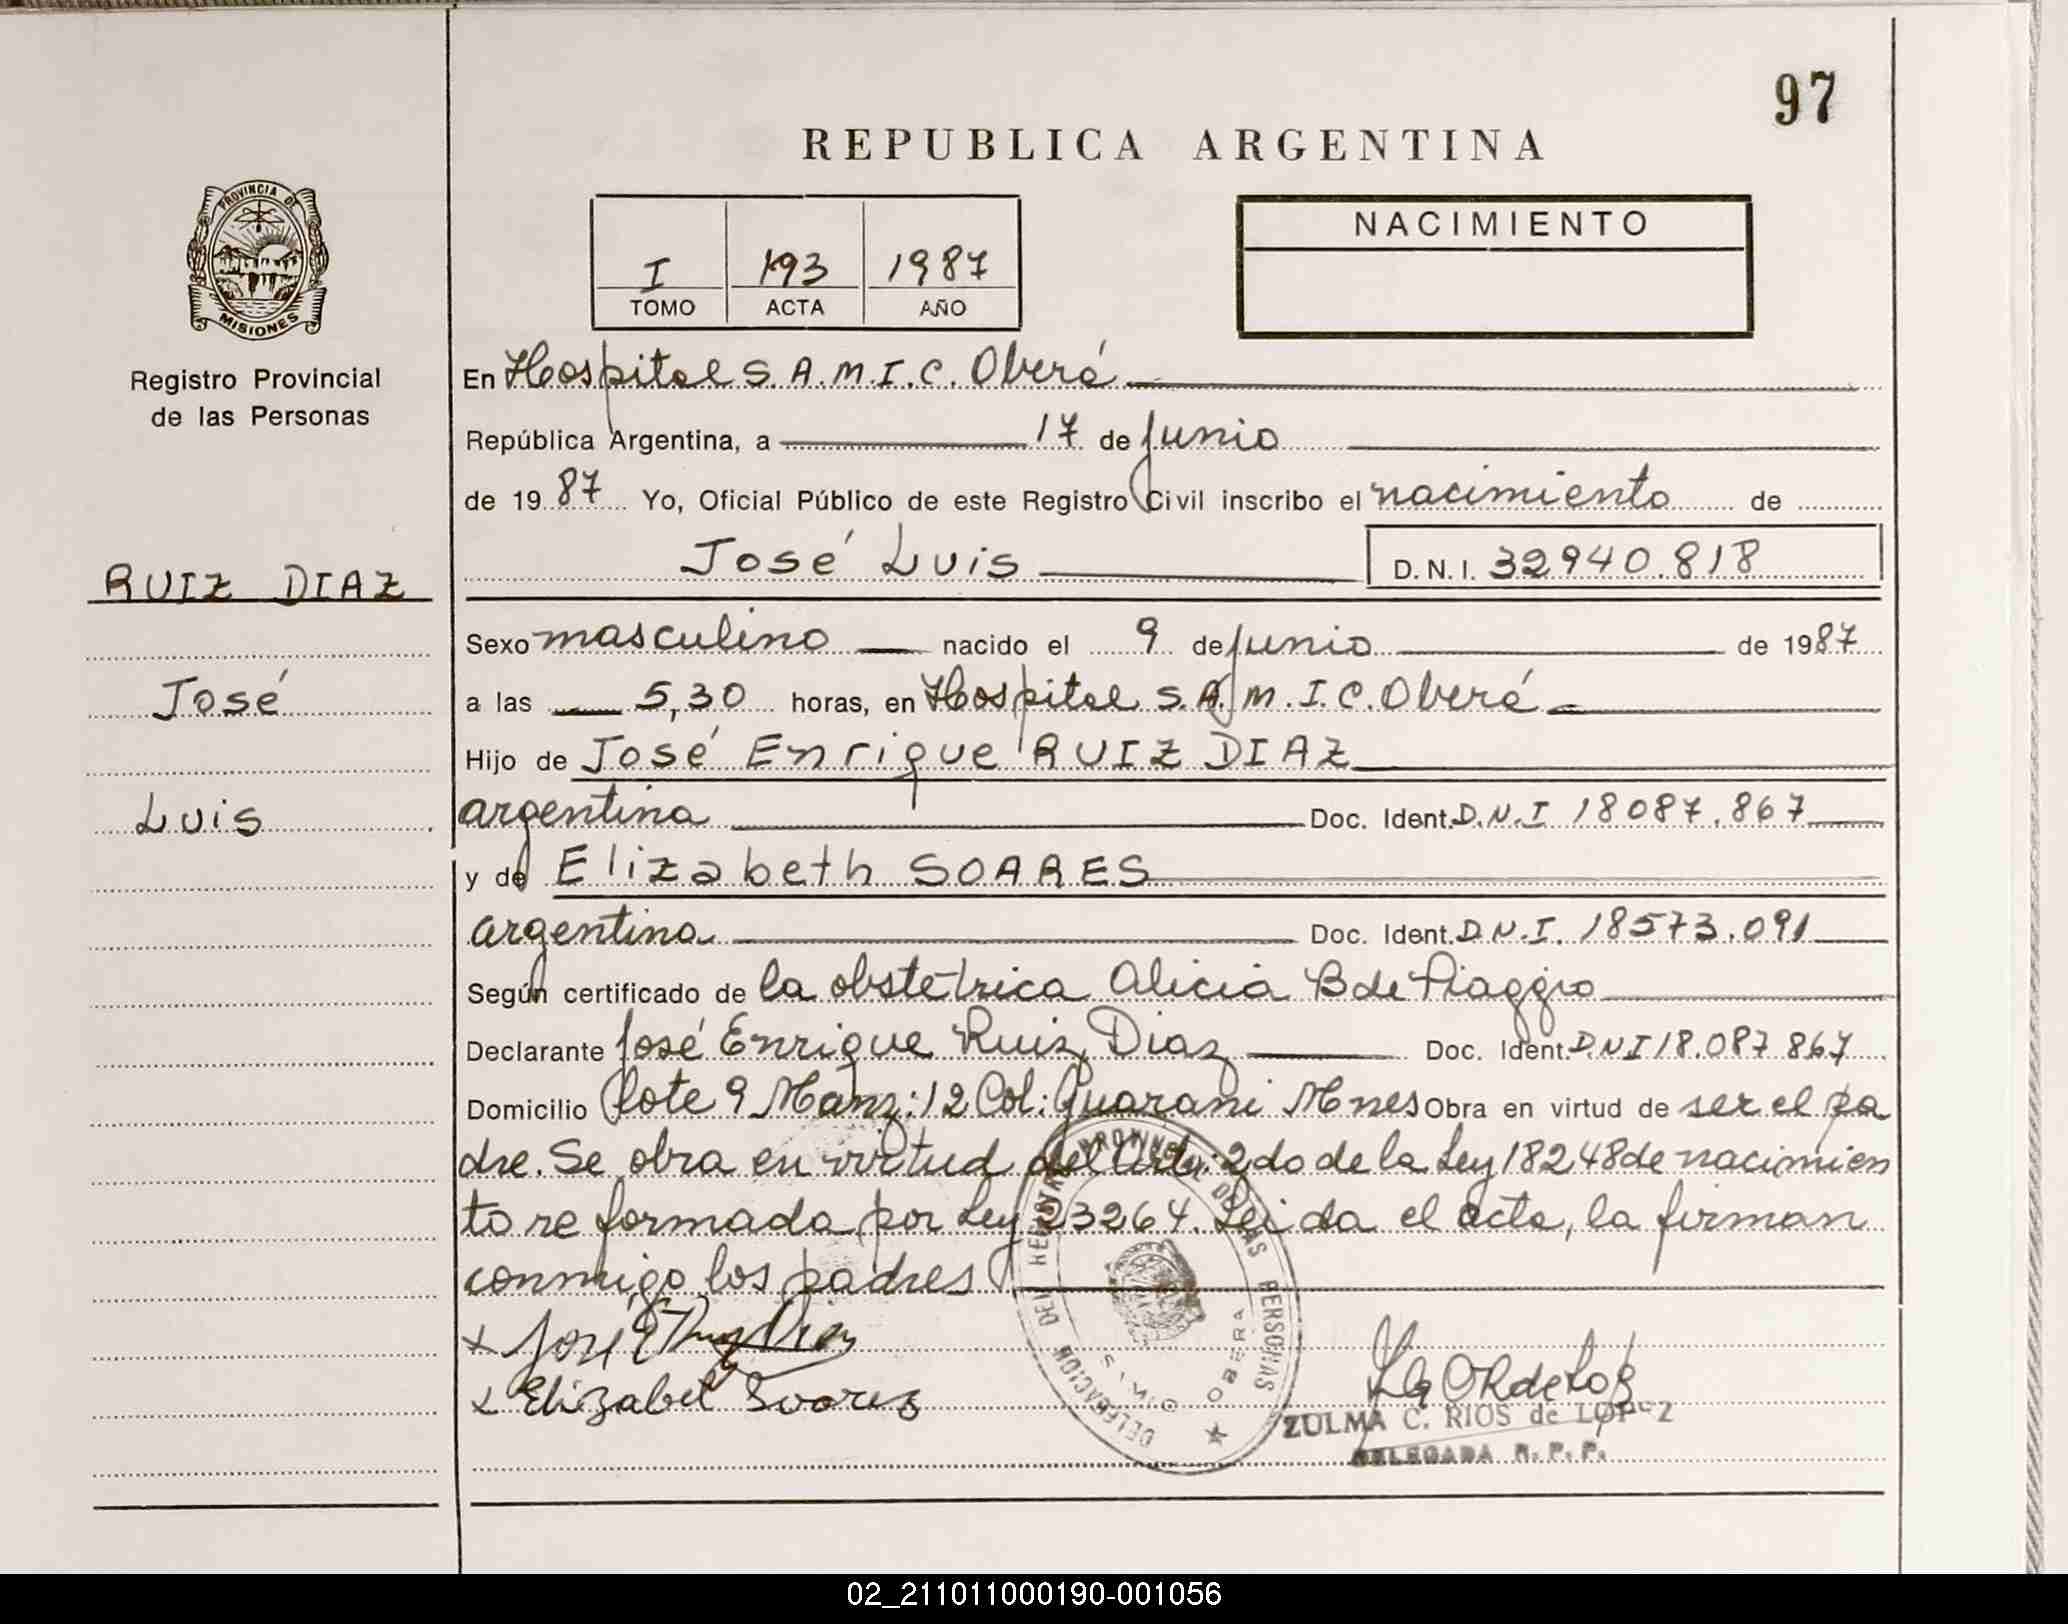 97
REPUBLICA ARGENTINA
PROVINCIA DE
MISIONES
Registro Provincial
de las Personas
I 193 1987
TOMO ACTA AÑO
NACIMIENTO
En Hospital S.A.M.I.C. Oberá
República Argentina, a 17 de Junio
de 1987 Yo, Oficial Público de este Registro Civil inscribo el nacimiento de
José Luis D.N.I. 32940.818
RUIZ DIAZ
José
Luis
Sexo masculino nacido el 9 de Junio de 1987
a las 5,30 horas, en Hospital S.A.M.I.C. Oberá
Hijo de José Enrique RUIZ DIAZ
argentina Doc. Ident. D.N.I 18087.867
y de Elizabeth SOARES
argentina Doc. Ident. D.N.I. 18573.091
Según certificado de la obstetrica Alicia B de Piaggio
Declarante José Enrique Ruiz Diaz Doc. Ident. D.N.I 18.087 867
Domicilio lote 9 Manz: 12 Col: Guarani Mnes Obra en virtud de ser el pa
dre. Se obra en virtud del Art: 2do de la Ley 18248 de nacimien
to reformada por Ley 23264. Leida el acta, la firman
conmigo los padres
x José E Ruiz Diaz
x Elizabet Soares
DELEGACION DEL REGISTRO PROVINCIAL DE LAS PERSONAS
OBERÁ
ZULMA C. RIOS de LOPEZ
DELEGADA R. P. P.
02_211011000190-001056